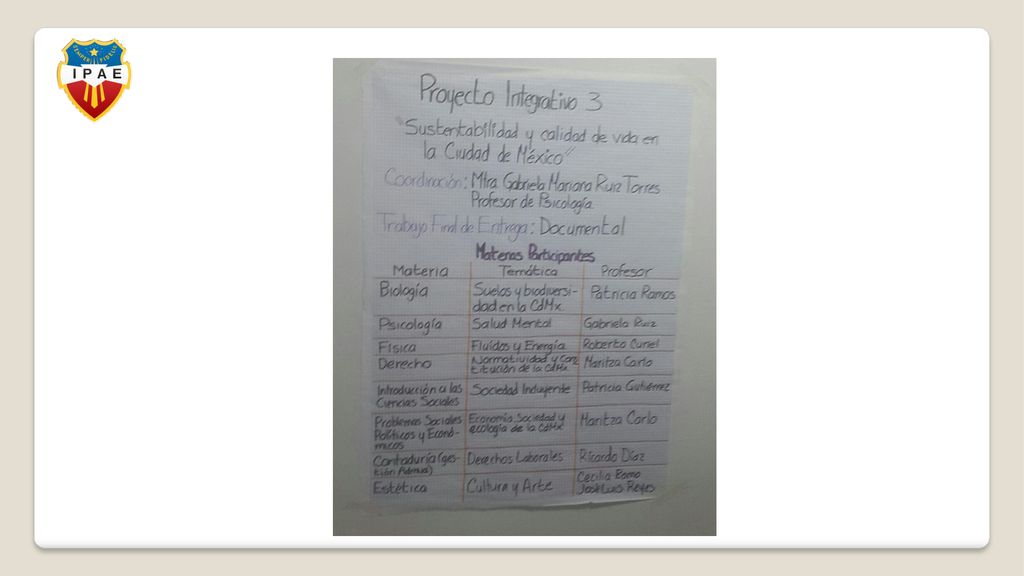 SEMPER FIDELIS
IPAE
Proyecto Integrativo 3
"Sustentabilidad y calidad de vida en
la Ciudad de México"
Coordinación: Mtra. Gabriela Mariana Ruiz Torres
Profesor de Psicología
Trabajo Final de Entrega: Documental
Materias Participantes
Materia Temática Profesor
Biología Suelos y biodiversi- Patricia Ramos
dad en la CdMx
Psicología Salud Mental Gabriela Ruiz
Física Fluidos y Energía Roberto Curiel
Derecho Normatividad y Cons Maritza Carlo
titución de la CdMx
Introducción a las Sociedad Incluyente Patricia Gutiérrez
Ciencias Sociales
Problemas Sociales Economía, Sociedad y Maritza Carlo
Políticos y Econó- ecología de la CdMx
micos
Contaduría (ges- Derechos Laborales Ricardo Díaz
tión Admva)
Estética Cultura y Arte Cecilia
José Luis Reyes